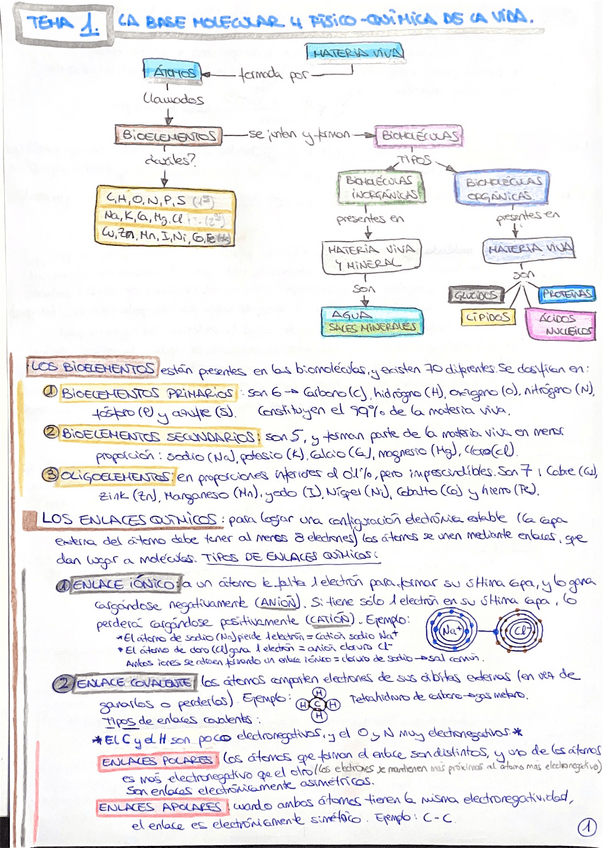 TEMA 1. LA BASE MOLECULAR Y FÍSICO-QUÍMICA DE LA VIDA.
MATERIA VIVA
ÁTOMOS formada por
llamados
BIOELEMENTOS se juntan y forman BIOMOLÉCULAS
cuáles? TIPOS
C, H, O, N, P, S (1º)
Na, K, Ca, Mg, Cl (2º)
Cu, Zn, Mn, I, Ni, Co, Fe
BIOMOLÉCULAS INORGÁNICAS
BIOMOLÉCULAS ORGÁNICAS
presentes en presentes en
MATERIA VIVA Y MINERAL
MATERIA VIVA
son son
AGUA
SALES MINERALES
GLÚCIDOS PROTEÍNAS
LÍPIDOS ÁCIDOS NUCLEICOS
LOS BIOELEMENTOS están presentes en las biomoléculas, y existen 70 diferentes. Se clasifican en:
1 BIOELEMENTOS PRIMARIOS: son 6 → Carbono (C), hidrógeno (H), oxígeno (O), nitrógeno (N),
fósforo (P) y azufre (S). Constituyen el 99% de la materia viva.
2 BIOELEMENTOS SECUNDARIOS: son 5, y forman parte de la materia viva en menor
proporción: sodio (Na), potasio (K), calcio (Ca), magnesio (Mg), cloro (Cl).
3 OLIGOELEMENTOS: en proporciones inferiores al 0,1%, pero imprescindibles. Son 7: Cobre (Cu),
zink (Zn), Manganeso (Mn), yodo (I), Níquel (Ni), Cobalto (Co) y hierro (Fe).
LOS ENLACES QUÍMICOS: para lograr una configuración electrónica estable (la capa
externa del átomo debe tener al menos 8 electrones) los átomos se unen mediante enlaces, que
dan lugar a moléculas. TIPOS DE ENLACES QUÍMICOS:
1 ENLACE IÓNICO: a un átomo le falta 1 electrón para formar su última capa, y lo gana
cargándose negativamente (ANIÓN). Si tiene sólo 1 electrón en su última capa, lo
perderá cargándose positivamente (CATIÓN). Ejemplo:
* El átomo de sodio (Na) pierde 1 electrón = catión sodio Na⁺
* El átomo de cloro (Cl) gana 1 electrón = anión cloruro Cl⁻
Ambos iones se atraen formando un enlace iónico = cloruro de sodio → sal común.
Na⁺ Cl⁻
2 ENLACE COVALENTE: los átomos comparten electrones de sus órbitas externas (en vez de
ganarlos o perderlos). Ejemplo: H H C H H Tetrahidruro de carbono → gas metano.
Tipos de enlaces covalentes:
* El C y el H son poco electronegativos, y el O y N muy electronegativos *
ENLACES POLARES: los átomos que forman el enlace son distintos, y uno de los átomos
es más electronegativo que el otro (los electrones se mantienen más próximos al átomo más electronegativo)
Son enlaces electrónicamente asimétricos.
ENLACES APOLARES: cuando ambos átomos tienen la misma electronegatividad,
el enlace es electrónicamente simétrico. Ejemplo: C-C.
1